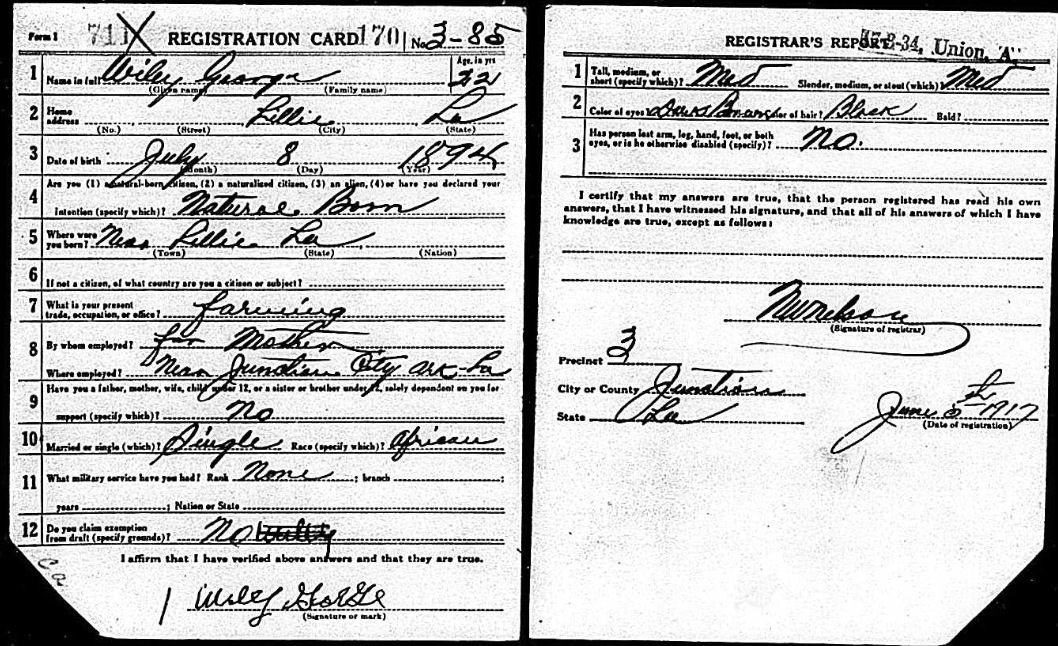 Form 1 711 REGISTRATION CARD 1701 No. 3-85
1 Name in full Wiley George Age, in yrs 22
(Given name) (Family name)
2 Home address Lillie La
(No.) (Street) (City) (State)
3 Date of birth July 8 1894
(Month) (Day) (Year)
Are you (1) a natural-born citizen, (2) a naturalized citizen, (3) an alien, (4) or have you declared your
4 intention (specify which)? Natural Born
5 Where were you born? Near Lillie La
(Town) (State) (Nation)
6 If not a citizen, of what country are you a citizen or subject?
7 What is your present trade, occupation, or office? farming
8 By whom employed? for Mother
Where employed? Near Junction City Ark-La
Have you a father, mother, wife, child under 12, or a sister or brother under 12, solely dependent on you for
9 support (specify which)? No
10 Married or single (which)? Single Race (specify which)? African
11 What military service have you had? Rank None ; branch ;
years ; Nation or State
12 Do you claim exemption from draft (specify grounds)? No
I affirm that I have verified above answers and that they are true.
Wiley George
(Signature or mark)
REGISTRAR'S REPORT 17-2-34, Union, "A"
1 Tall, medium, or short (specify which)? Med Slender, medium, or stout (which)? Med
2 Color of eyes? Dark Brown Color of hair? Black Bald?
3 Has person lost arm, leg, hand, foot, or both eyes, or is he otherwise disabled (specify)? No.
I certify that my answers are true, that the person registered has read his own
answers, that I have witnessed his signature, and that all of his answers of which I have
knowledge are true, except as follows:
(Signature of registrar)
Precinct 3
City or County Junction
State La
June 5th 1917
(Date of registration)